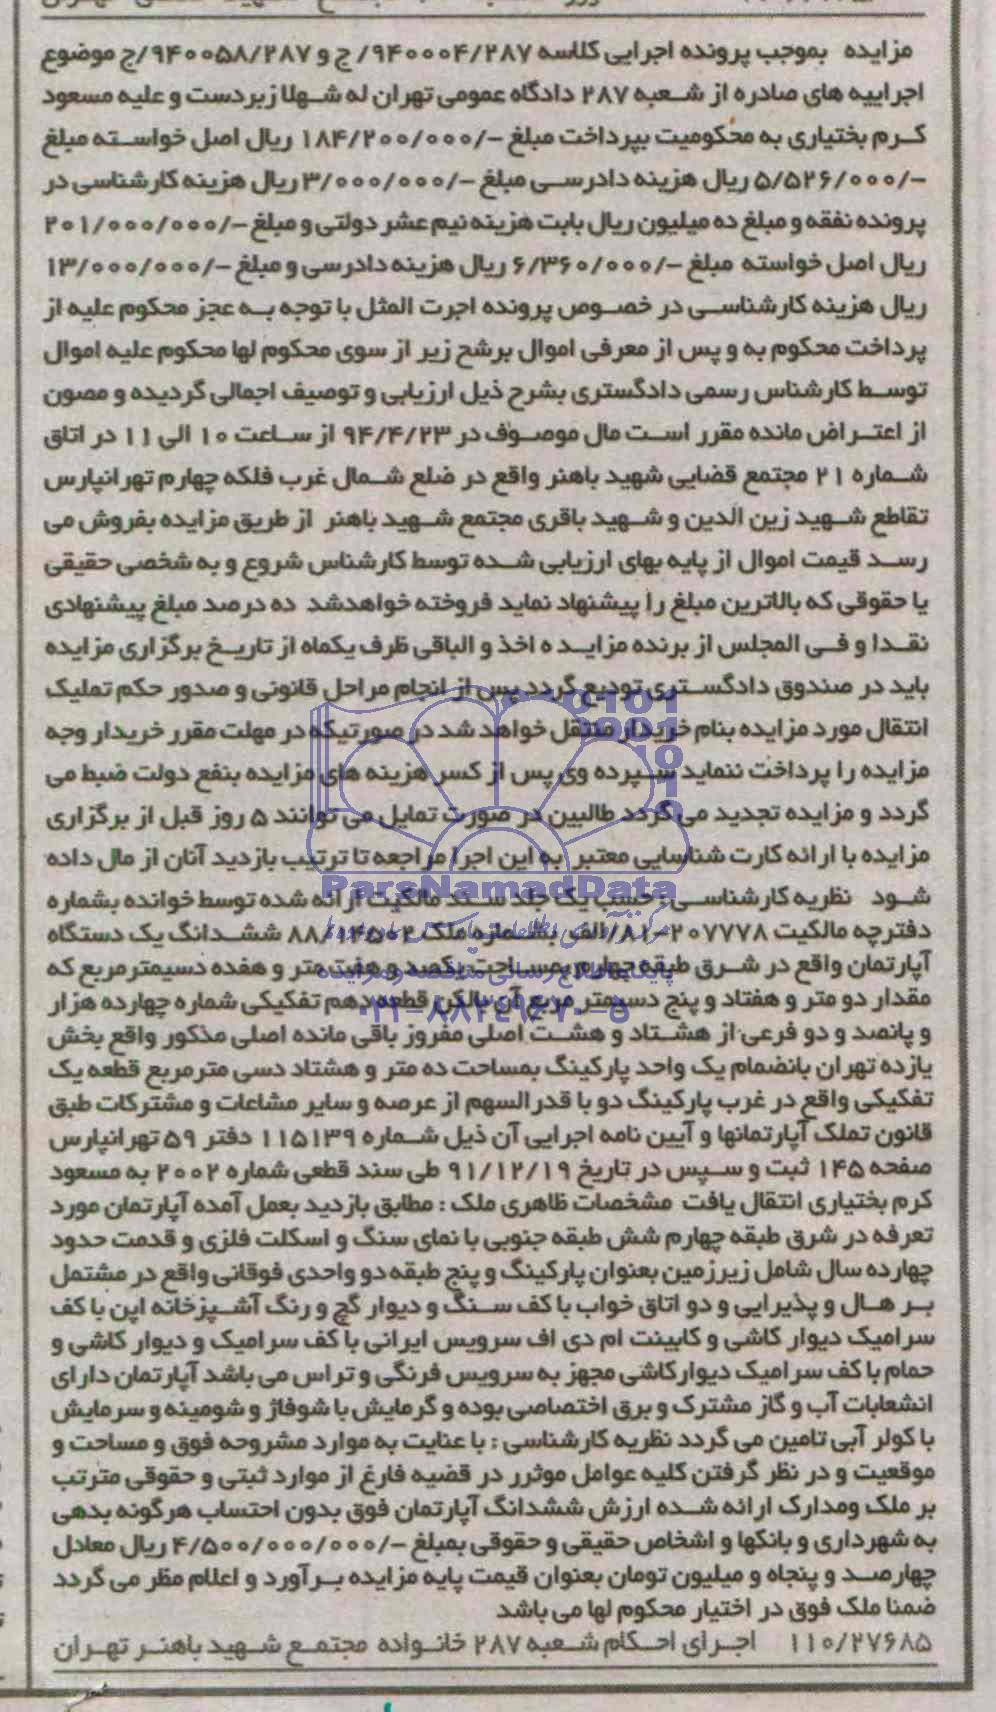 مزایده بموجب پرونده اجرایی کلاسه ۹۴۰۰۰۴/۲۸۷/ج و ۹۴۰۰۵۸/۲۸۷/ج موضوع
اجراییه های صادره از شعبه ۲۸۷ دادگاه عمومی تهران له شهلا زبردست و علیه مسعود
کرم بختیاری به محکومیت بپرداخت مبلغ -/۱۸۴/۲۰۰/۰۰۰ ریال اصل خواسته مبلغ
-/۵/۵۲۶/۰۰۰ ریال هزینه دادرسی مبلغ -/۳/۰۰۰/۰۰۰ ریال هزینه کارشناسی در
پرونده نفقه و مبلغ ده میلیون ریال بابت هزینه نیم عشر دولتی و مبلغ -/۲۰۱/۰۰۰/۰۰۰
ریال اصل خواسته مبلغ -/۶/۳۶۰/۰۰۰ ریال هزینه دادرسی و مبلغ -/۱۳/۰۰۰/۰۰۰
ریال هزینه کارشناسی در خصوص پرونده اجرت المثل با توجه به عجز محکوم علیه از
پرداخت محکوم به و پس از معرفی اموال برشح زیر از سوی محکوم لها محکوم علیه اموال
توسط کارشناس رسمی دادگستری بشرح ذیل ارزیابی و توصیف اجمالی گردیده و مصون
از اعتراض مانده مقرر است مال موصوف در ۹۴/۴/۲۳ از ساعت ۱۰ الی ۱۱ در اتاق
شماره ۲۱ مجتمع قضایی شهید باهنر واقع در ضلع شمال غرب فلکه چهارم تهرانپارس
تقاطع شهید زین الدین و شهید باقری مجتمع شهید باهنر از طریق مزایده بفروش می
رسد قیمت اموال از پایه بهای ارزیابی شده توسط کارشناس شروع و به شخصی حقیقی
یا حقوقی که بالاترین مبلغ را پیشنهاد نماید فروخته خواهدشد ده درصد مبلغ پیشنهادی
نقدا و فی المجلس از برنده مزایده اخذ و الباقی ظرف یکماه از تاریخ برگزاری مزایده
باید در صندوق دادگستری تودیع گردد پس از انجام مراحل قانونی و صدور حکم تملیک
انتقال مورد مزایده بنام خریدار منتقل خواهد شد در صورتیکه در مهلت مقرر خریدار وجه
مزایده را پرداخت ننماید سپرده وی پس از کسر هزینه های مزایده بنفع دولت ضبط می
گردد و مزایده تجدید می گردد طالبین در صورت تمایل می توانند ۵ روز قبل از برگزاری
مزایده با ارائه کارت شناسایی معتبر به این اجرا مراجعه تا ترتیب بازدید آنان از مال داده
ParsNamadData
شود نظریه کارشناسی : حسب یک جلد سند مالکیت ارائه شده توسط خوانده بشماره
دفترچه مالکیت ۲۰۷۷۷۸-۸۱/الف بشماره ملک ۸۸/۱۴۵۰۲ ششدانگ یک دستگاه
آپارتمان واقع در شرق طبقه چهارم بمساحت یکصد و هفت متر و هفده دسیمترمربع که
مقدار دو متر و هفتاد و پنج دسیمتر مربع آن بالکن قطعه دهم تفکیکی شماره چهارده هزار
۰۲۱-۸۸۳۴۹۶۷۰-۵
و پانصد و دو فرعی از هشتاد و هشت اصلی مفروز باقی مانده اصلی مذکور واقع بخش
یازده تهران بانضمام یک واحد پارکینگ بمساحت ده متر و هشتاد دسی مترمربع قطعه یک
تفکیکی واقع در غرب پارکینگ دو با قدرالسهم از عرصه و سایر مشاعات و مشترکات طبق
قانون تملک آپارتمانها و آیین نامه اجرایی آن ذیل شماره ۱۱۵۱۳۹ دفتر ۵۹ تهرانپارس
صفحه ۱۴۵ ثبت و سپس در تاریخ ۹۱/۱۲/۱۹ طی سند قطعی شماره ۲۰۰۲ به مسعود
کرم بختیاری انتقال یافت مشخصات ظاهری ملک : مطابق بازدید بعمل آمده آپارتمان مورد
تعرفه در شرق طبقه چهارم شش طبقه جنوبی با نمای سنگ و اسکلت فلزی و قدمت حدود
چهارده سال شامل زیرزمین بعنوان پارکینگ و پنج طبقه دو واحدی فوقانی واقع در مشتمل
بر هال و پذیرایی و دو اتاق خواب با کف سنگ و دیوار گچ و رنگ آشپزخانه اپن با کف
سرامیک دیوار کاشی و کابینت ام دی اف سرویس ایرانی با کف سرامیک و دیوار کاشی و
حمام با کف سرامیک دیوارکاشی مجهز به سرویس فرنگی و تراس می باشد آپارتمان دارای
انشعابات آب و گاز مشترک و برق اختصاصی بوده و گرمایش با شوفاژ و شومینه و سرمایش
با کولر آبی تامین می گردد نظریه کارشناسی : با عنایت به موارد مشروحه فوق و مساحت و
موقعیت و در نظر گرفتن کلیه عوامل موثرر در قضیه فارغ از موارد ثبتی و حقوقی مترتب
بر ملک ومدارک ارائه شده ارزش ششدانگ آپارتمان فوق بدون احتساب هرگونه بدهی
به شهرداری و بانکها و اشخاص حقیقی و حقوقی بمبلغ -/۴/۵۰۰/۰۰۰/۰۰۰ ریال معادل
چهارصد و پنجاه و میلیون تومان بعنوان قیمت پایه مزایده برآورد و اعلام مظر می گردد
ضمنا ملک فوق در اختیار محکوم لها می باشد
۱۱۰/۲۷۶۸۵ اجرای احکام شعبه ۲۸۷ خانواده مجتمع شهید باهنر تهران